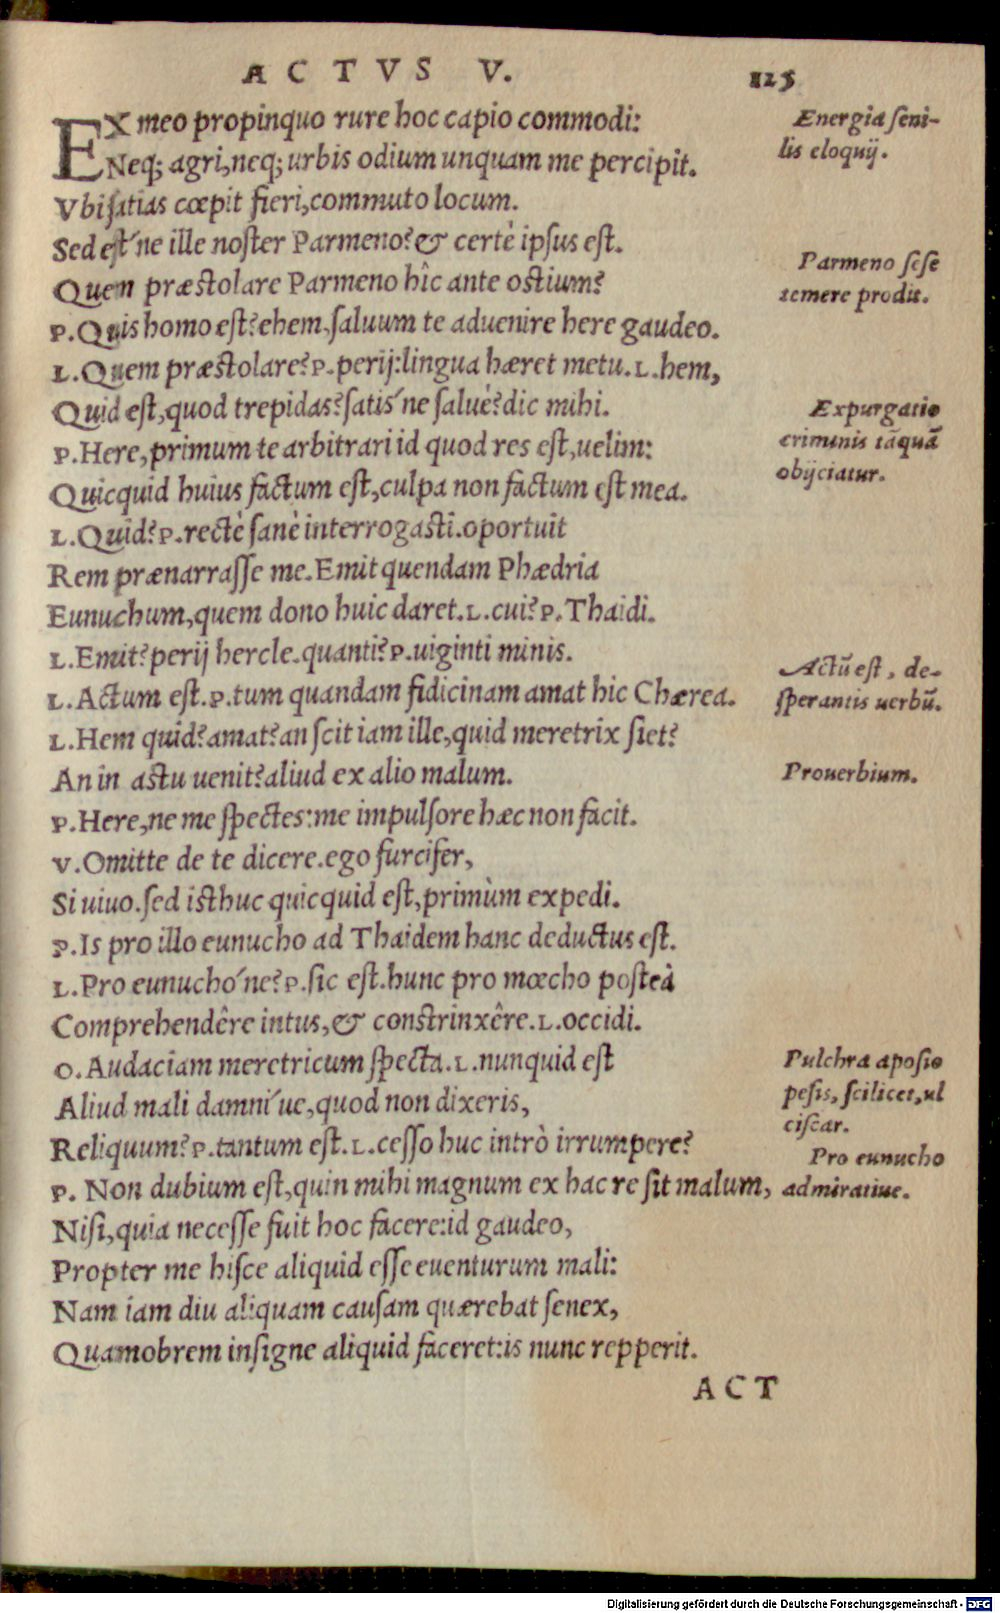 ACTVS V. 125
EX meo propinquo rure hoc capio commodi:
Neq; agri, neq; urbis odium unquam me percipit.
Vbi ſatias cœpit fieri, commuto locum.
Sed eſt´ne ille noſter Parmeno? & certè ipſus eſt.
Quem præſtolare Parmeno hîc ante oſtium?
P. Quis homo eſt? ehem, ſaluum te aduenire here gaudeo.
L. Quem præſtolare? P. perij: lingua hæret metu. L. hem,
Quid eſt, quod trepidas? ſatis´ne ſaluè? dic mihi.
P. Here, primum te arbitrari id quod res eſt, uelim:
Quicquid huius factum eſt, culpa non factum eſt mea.
L. Quid? P. rectè ſanè interrogaſti. oportuit
Rem prænarraſſe me. Emit quendam Phædria
Eunuchum, quem dono huic daret. L. cui? P. Thaidi.
L. Emit? perij hercle. quanti? P. uiginti minis.
L. Actum eſt. P. tum quandam fidicinam amat hic Chærea.
L. Hem quid? amat? an ſcit iam ille, quid meretrix ſiet?
An in aſtu uenit? aliud ex alio malum.
P. Here, ne me ſpectes: me impulſore hæc non facit.
V. Omitte de te dicere. ego furcifer,
Si uiuo. ſed iſthuc quicquid eſt, primùm expedi.
P. Is pro illo eunucho ad Thaidem hanc deductus eſt.
L. Pro eunucho´ne? P. ſic eſt. hunc pro mœcho poſteà
Comprehendêre intus, & conſtrinxêre. L. occidi.
O. Audaciam meretricum ſpecta. L. nunquid eſt
Aliud mali damni´ue, quod non dixeris,
Reliquum? P. tantum eſt. L. ceſſo huc intrò irrumpere?
P. Non dubium eſt, quin mihi magnum ex hac re ſit malum,
Niſi, quia neceſſe fuit hoc facere: id gaudeo,
Propter me hiſce aliquid eſſe euenturum mali:
Nam iam diu aliquam cauſam quærebat ſenex,
Quamobrem inſigne aliquid faceret: is nunc repperit.
ACT
Energia ſeni-
lis eloquij.
Parmeno ſeſe
temere prodit.
Expurgatio
criminis tãquã
obijciatur.
Actũ eſt, de-
ſperantis uerbũ.
Prouerbium.
Pulchra apoſio
peſis, ſcilicet, ul
ciſcar.
Pro eunucho
admiratiue.
Digitalisierung gefördert durch die Deutsche Forschungsgemeinschaft - DFG